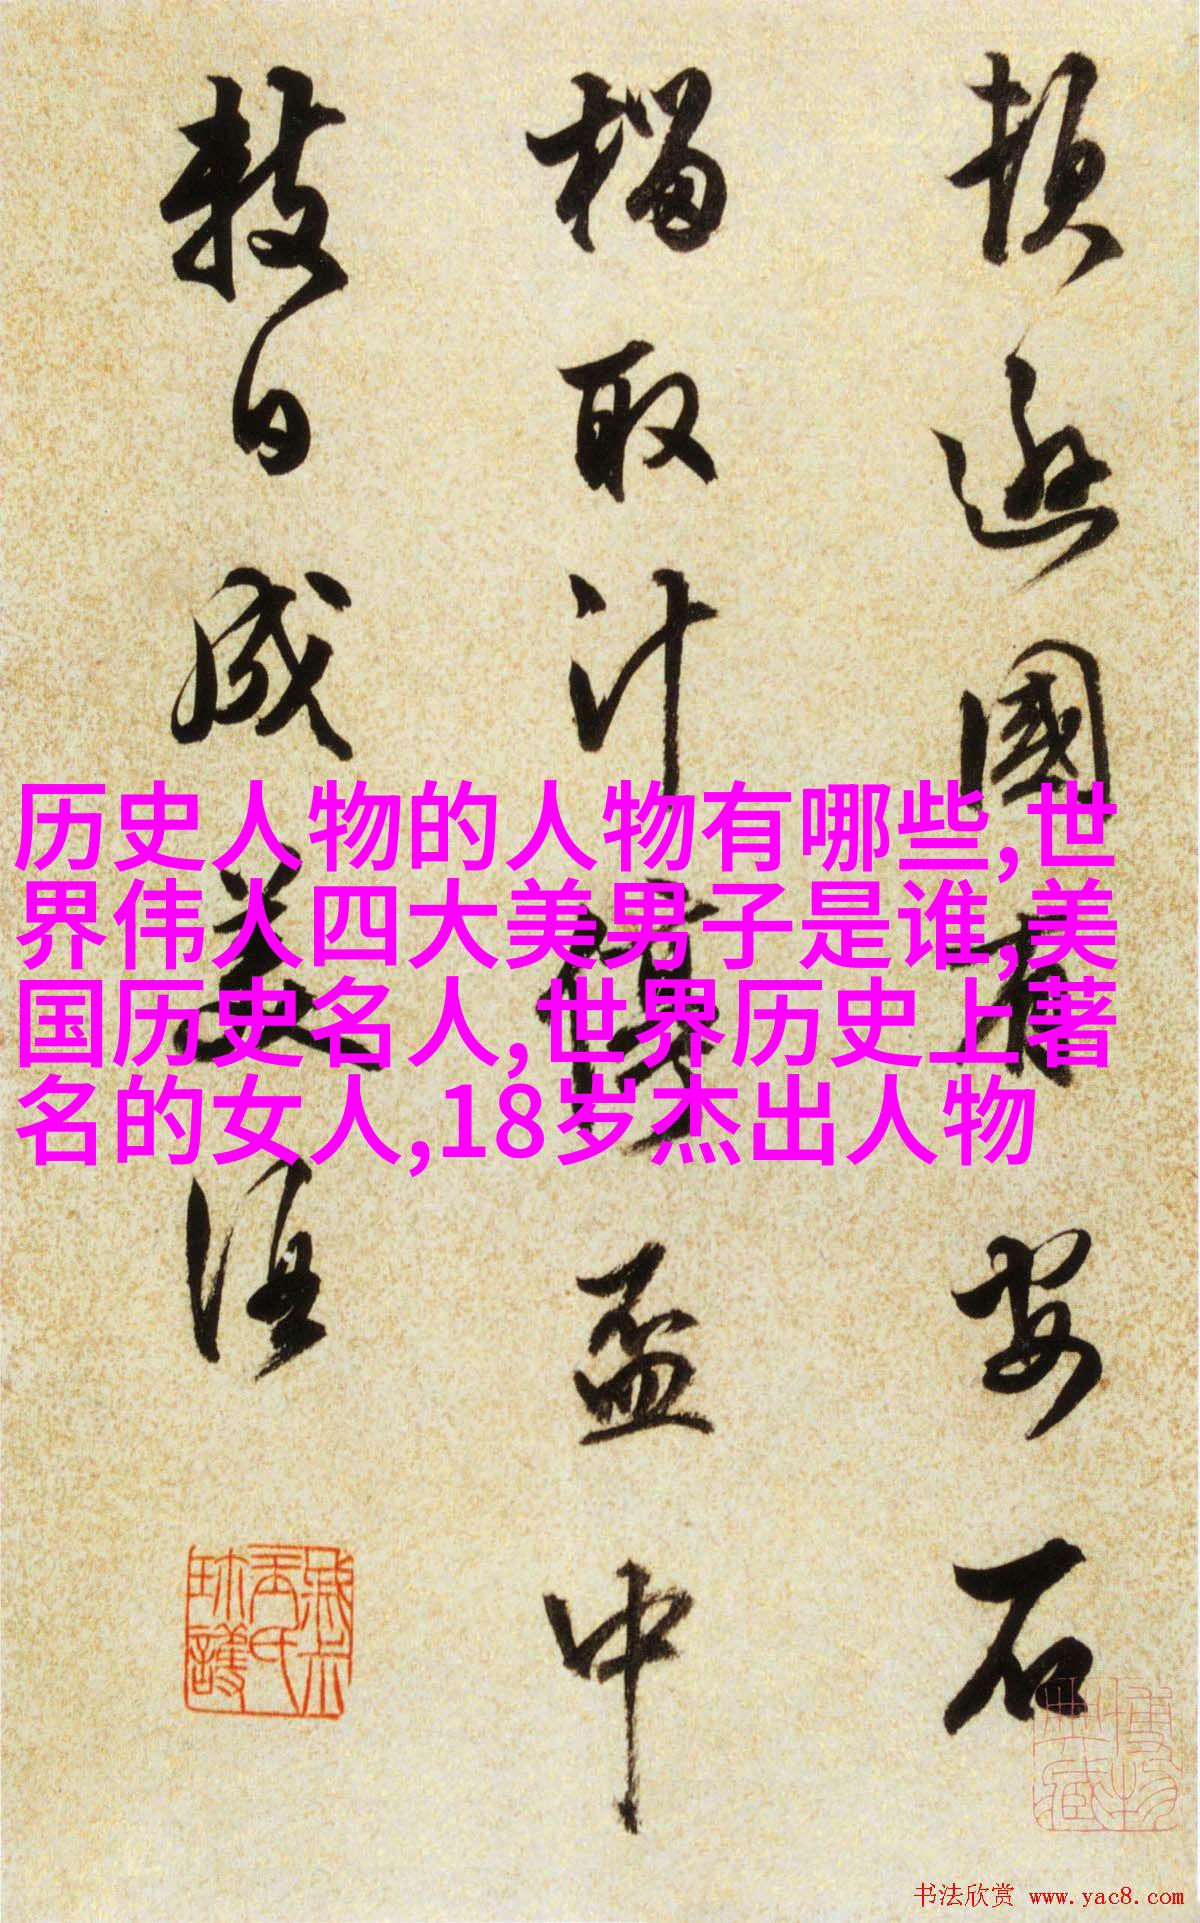 頓遜國有安石
榴取汁停盃中
數日成美酒
历史人物的人物有哪些,世
界伟人四大美男子是谁,美
国历史名人,世界历史上著
名的女人,18岁杰出人物
书法欣赏 www.yac8.com